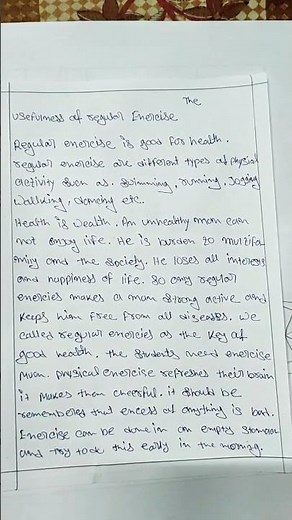 The
Usefulness of regular Enercise
Regular enercise is good for health.
regular enercise are different types of physial
activity such as. Swimming, running, Jogging
Wallking, dancing etc..
Health is Wealth. An unhealthy man can
not enjoy life. He is burden to
and the society. He loses all interest
and nappiness of life. So any regular
enercies makes a man strong active and
keeps him free from all diseases. We
called regular enercies as the key of
good health. the students need enercise
muan. physical enercise refreshes their brain
it makes them cheerful. it should be
remembered that encess of anything is bad.
Enercise can be done in an empty stomach
and try to do this early in the morning.